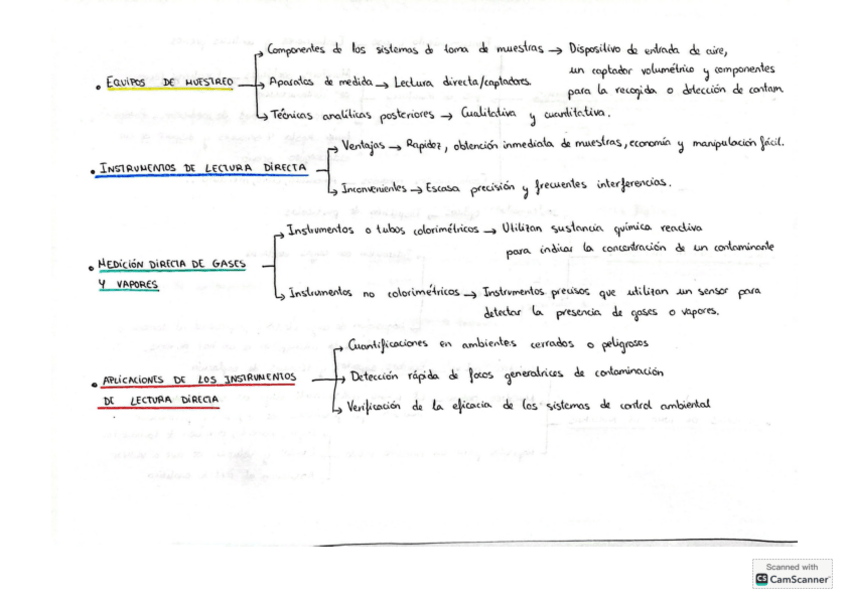 Componentes de los sistemas de toma de muestras → Dispositivo de entrada de aire,
un captador volumétrico y componentes
para la recogida o detección de contam
• EQUIPOS DE MUESTREO
Aparatos de medida → Lectura directa/captadores.
Técnicas analíticas posteriores → Cualitativa y cuantitativa.
• INSTRUMENTOS DE LECTURA DIRECTA
Ventajas → Rapidez, obtención inmediata de muestras, economía y manipulación fácil.
Inconvenientes → Escasa precisión y frecuentes interferencias.
• MEDICIÓN DIRECTA DE GASES
Y VAPORES
Instrumentos o tubos colorimétricos → Utilizan sustancia química reactiva
para indicar la concentración de un contaminante
Instrumentos no colorimétricos → Instrumentos precisos que utilizan un sensor para
detectar la presencia de gases o vapores.
• APLICACIONES DE LOS INSTRUMENTOS
DE LECTURA DIRECTA
Cuantificaciones en ambientes cerrados o peligrosos
Detección rápida de focos generatrices de contaminación
Verificación de la eficacia de los sistemas de control ambiental
Scanned with
CS CamScanner